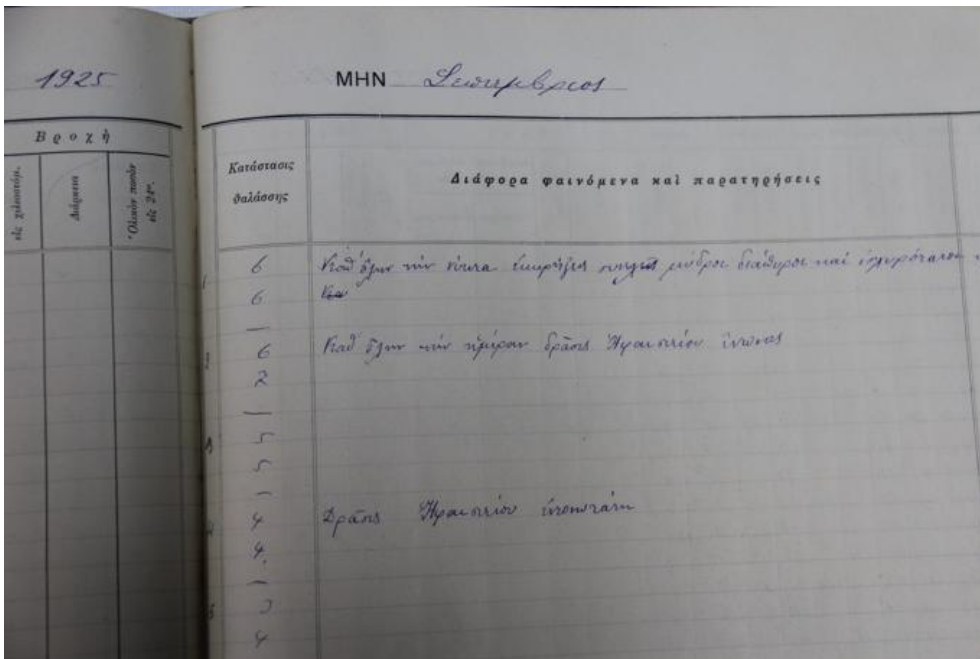 1925
ΜΗΝ Σεπτέμβριος
Βροχὴ
εἰς χιλιοστόμ.
Διάρκεια
Ὁλικὸν ποσὸν εἰς 24ω.
Κατάστασις θαλάσσης
Διάφορα φαινόμενα καὶ παρατηρήσεις
1 6 Καθ' ὅλην τὴν νύκτα ἐκρήξεις μύδροι διάπυροι καὶ
6
—
6 Καθ' ὅλην τὴν ἡμέραν δρᾶσις Ἡφαιστείου ἔντονος
2
—
3 5
5
—
4 4 Δρᾶσις Ἡφαιστείου ἐντονωτάτη
4.
—
5 3
4